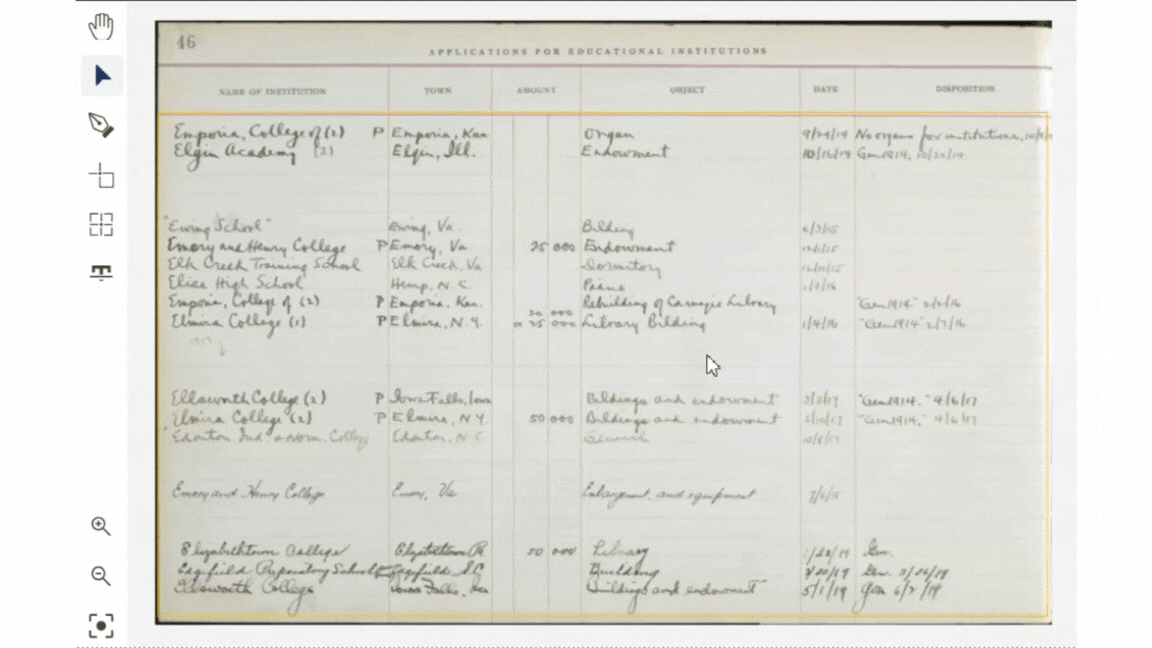 46
APPLICATIONS FOR EDUCATIONAL INSTITUTIONS
NAME OF INSTITUTION TOWN AMOUNT OBJECT DATE DISPOSITION
Emporia, College of (2) P Emporia, Kan Organ 9/24/14 No organs for institutions,
Elgin Academy (2) Elgin, Ill. Endowment 10/16/14 Gen1914, 10/20/14
"Ewing School" Ewing, Va. Bilding 6/3/15
Emory and Henry College P Emory, Va 25 000 Endowment
Elk Creek Training School Elk Creek, Va Dormitory
Elise High School Hemp, N.C. Piano
Emporia, College of (2) P Emporia, Kan. Rebuilding of Carnegie Library "Gen1914" 2/2/16
Elmira College (1) P Elmira, N.Y. 20 000 or 25 000 Library Bilding 1/4/16 "Gen1914" 2/7/16
Ellsworth College (2) P Iowa Falls, Iowa Bildings and endowment 3/3/17 "Gen1914," 4/6/17
Elmira College (2) P Elmira, N.Y. 50 000 Bildings and endowment "Gen1914," 4/6/17
Edenton Ind & Norm. College Edenton, N.C General
Emory and Henry College Emory, Va Enlargement, and equipment
Elizabethtown College Elizabethtown Pa 50 000 Library 1/28/19 Gen.
Edgefield Preparatory School Edgefield S.C Building Gen. 3/26/19
Ellsworth College Iowa Falls, Buildings and endowment 5/1/19 Gen